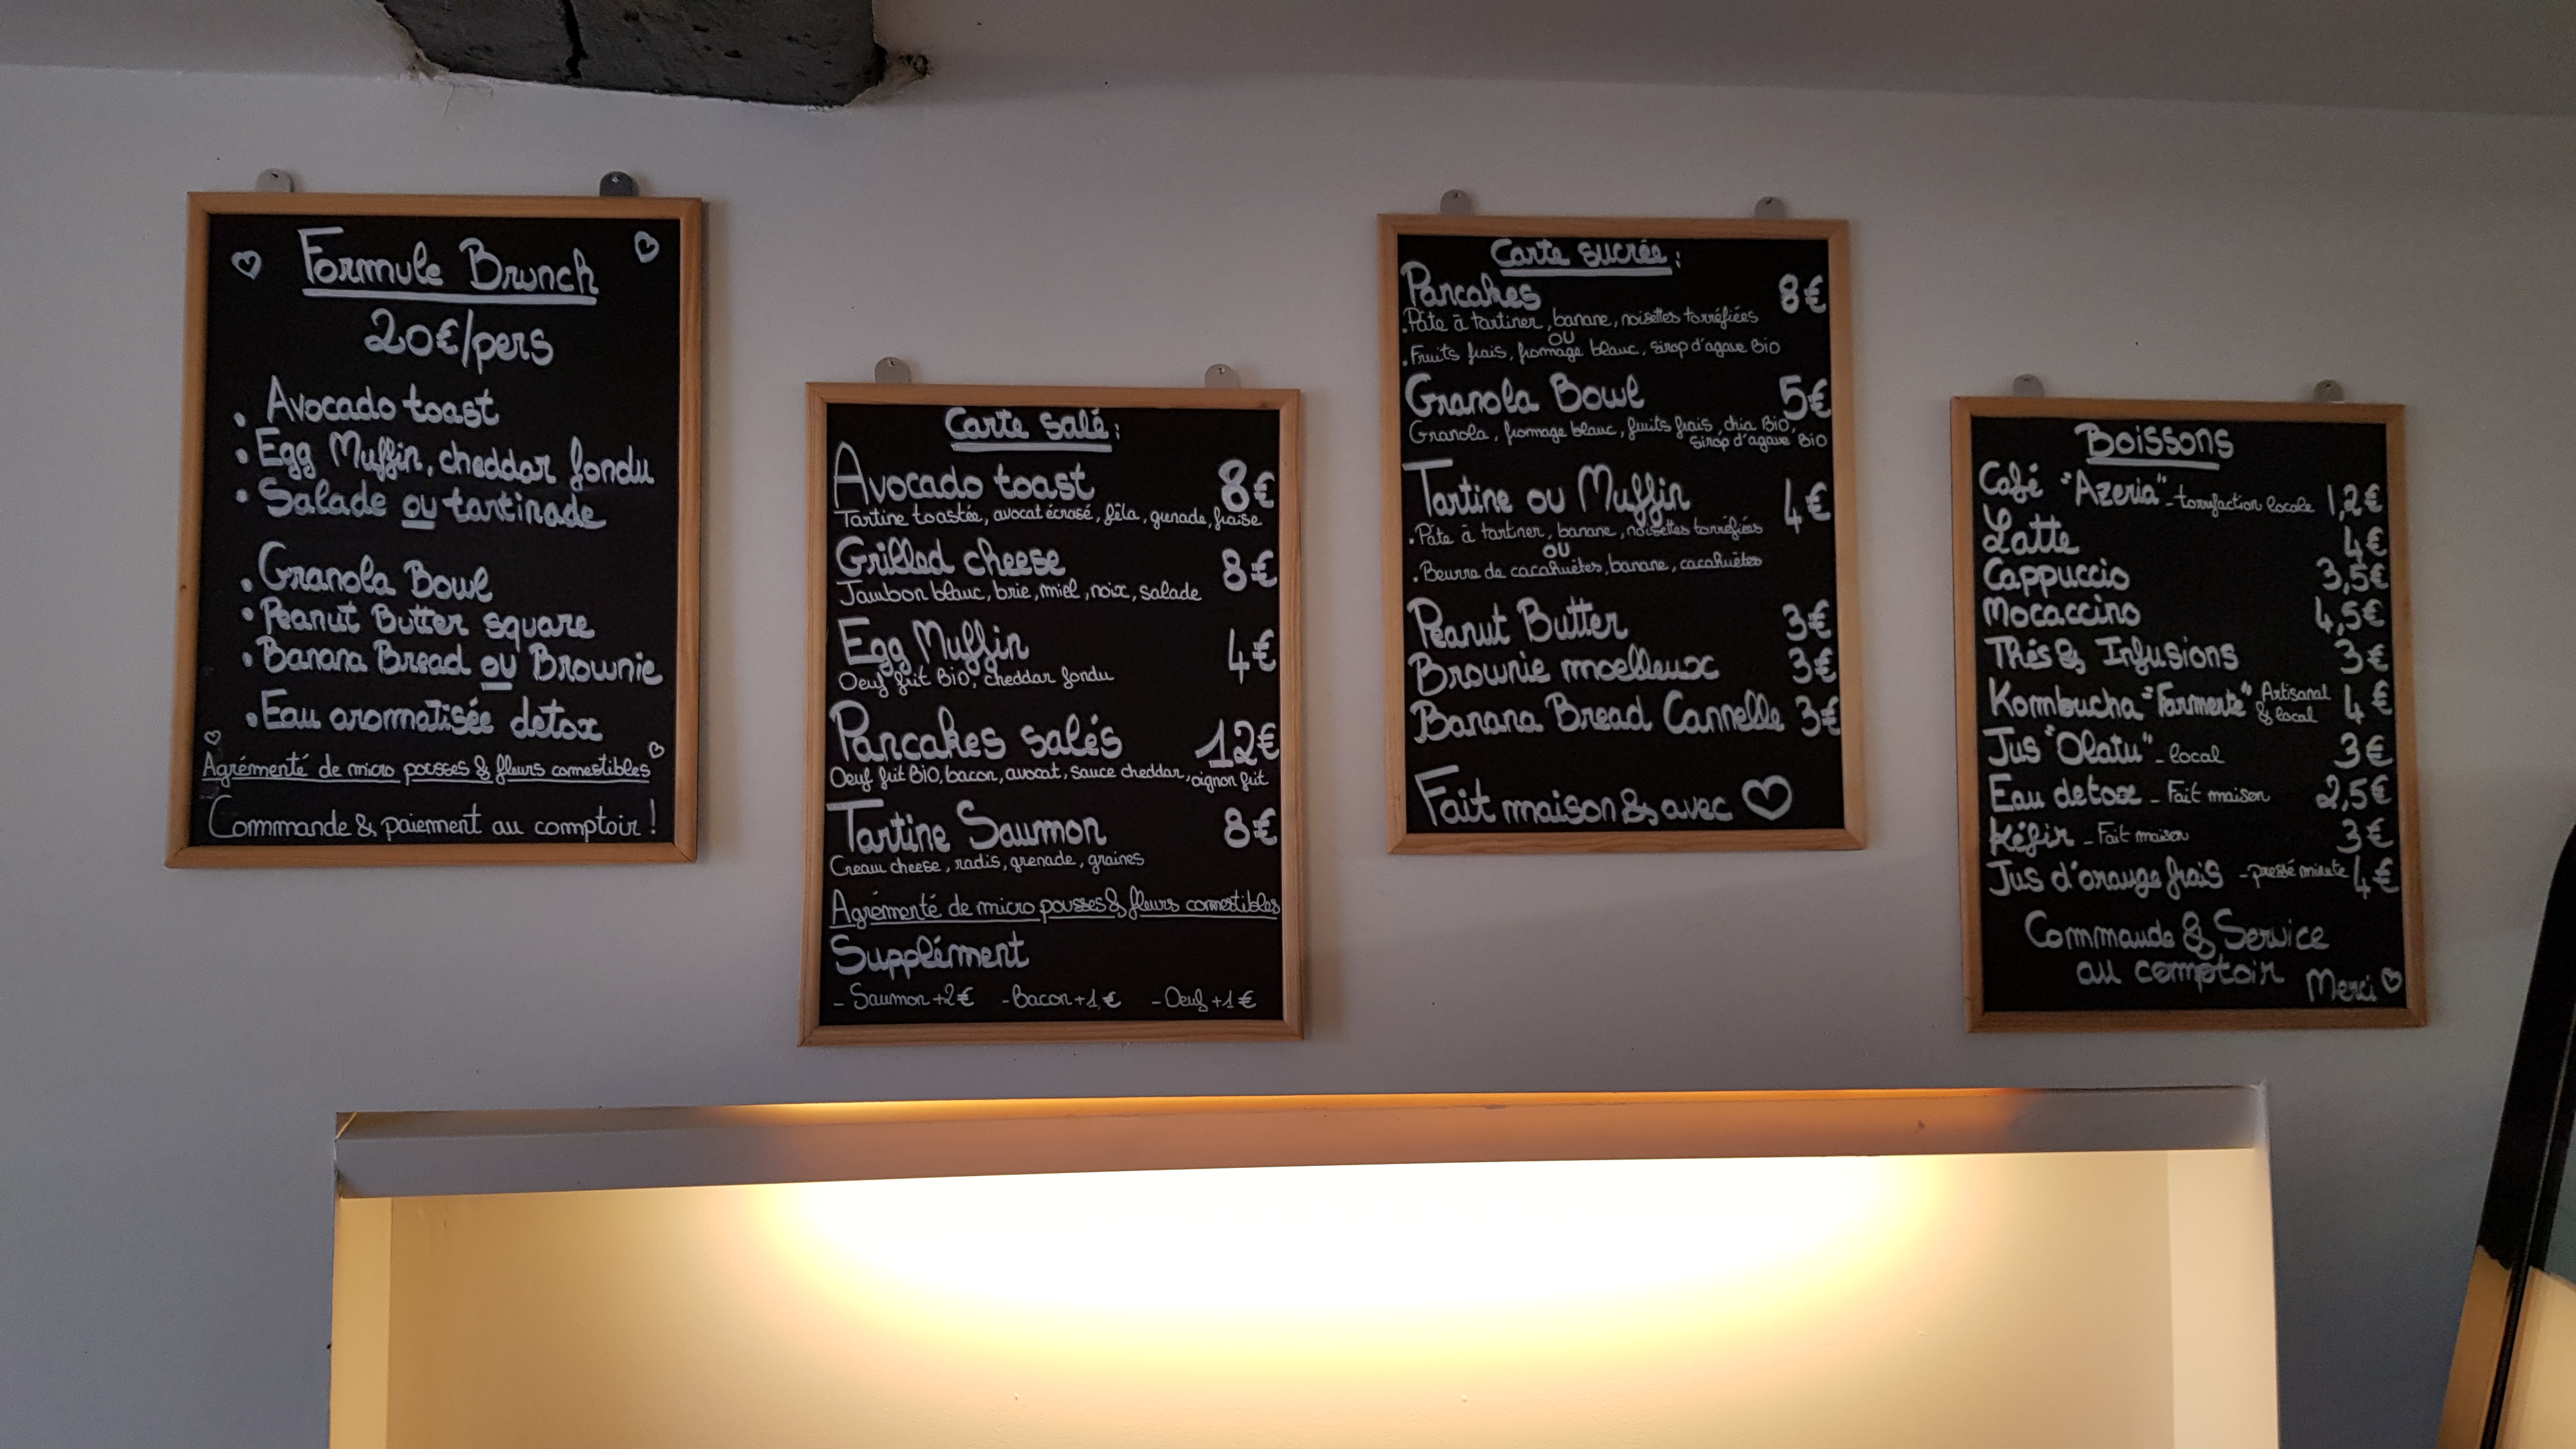 Formule Brunch
20€/pers
. Avocado toast
. Egg Muffin, cheddar fondu
. Salade ou tartinade
. Granola Bowl
. Peanut Butter square
. Banana Bread ou Brownie
. Eau aromatisée detox
Agrémenté de micro pousses & fleurs comestibles
Commande & paiement au comptoir !
Carte salé :
Avocado toast 8€
Tartine toastée, avocat écrasé, fêta, grenade, fraise
Grilled cheese 8€
Jambon blanc, brie, miel, noix, salade
Egg Muffin 4€
Oeuf frit BIO, cheddar fondu
Pancakes salés 12€
Oeuf frit BIO, bacon, avocat, sauce cheddar, oignon frit
Tartine Saumon 8€
Cream cheese, radis, grenade, graines
Agrémenté de micro pousses & fleurs comestibles
Supplément
- Saumon +2€ - Bacon +1€ - Oeuf +1€
Carte sucrée :
Pancakes 8€
. Pâte à tartiner, banane, noisettes torréfiées
OU
. Fruits frais, fromage blanc, sirop d'agave Bio
Granola Bowl 5€
Granola, fromage blanc, fruits frais, chia Bio,
sirop d'agave Bio
Tartine ou Muffin 4€
. Pâte à tartiner, banane, noisettes torréfiées
OU
. Beurre de cacahuètes, banane, cacahuètes
Peanut Butter 3€
Brownie moelleux 3€
Banana Bread Cannelle 3€
Fait maison & avec ♡
Boissons
Café "Azeria" - torréfaction locale 1,2€
Latte 4€
Cappuccio 3,5€
Mocaccino 4,5€
Thés & Infusions 3€
Kombucha "Farmenté" Artisanal & local 4€
Jus "Olatu" - local 3€
Eau detox - Fait maison 2,5€
Kéfir - Fait maison 3€
Jus d'orange frais - pressé minute 4€
Commande & Service
au comptoir
Merci ♡